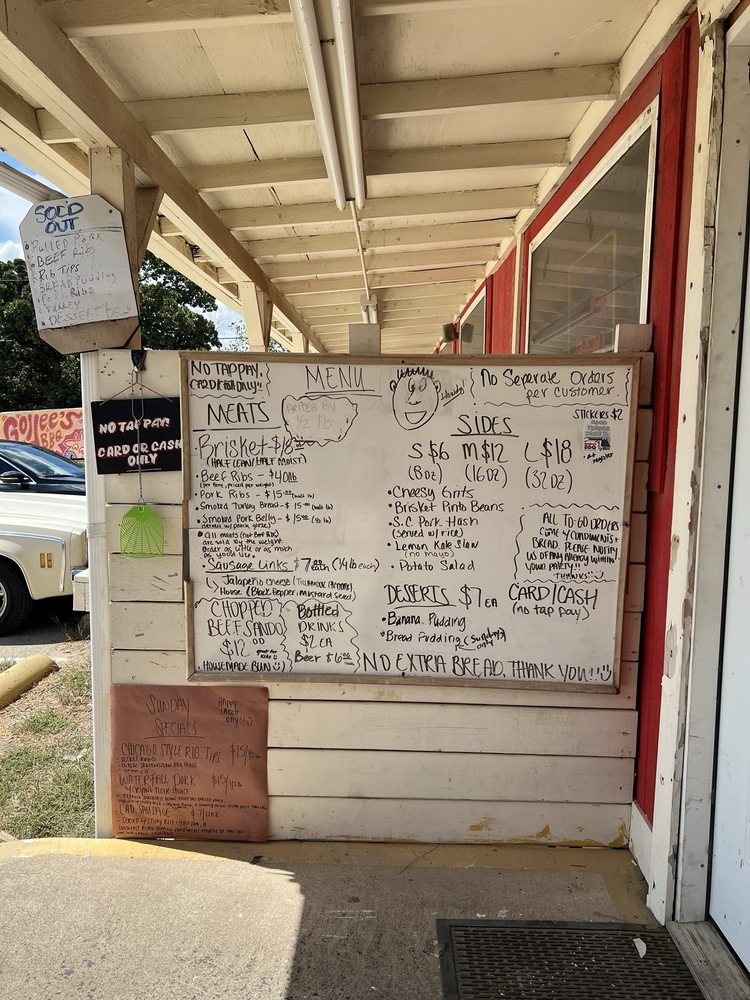 SOLD OUT
PULLED PORK
BEEF Ribs
Rib Tips
BREAD Pudding
Pork Ribs
TURKEY
DESSERT
NO TAP PAY
CARD OR CASH
ONLY
Goldee's
BBQ
NO TAP PAY,
CARD/CASH ONLY!!
MENU
PRICED BY
1/2 lb.
Howdy
No Seperate Orders
per customer
MEATS
• Brisket - $18
(HALF LEAN/HALF MOIST)
• Beef Ribs - $40 lb
(Per bone, priced per weight)
• Pork Ribs - $15.00 (half lb)
• Smoked Turkey Breast - $15.00 (half lb)
• Smoked Pork Belly - $15.00 (1/2 lb)
• All meats (not Beef Ribs)
are sold by the weight.
Order as little or as much
as you'd like.
• Sausage Links $7.00 each (1/4 lb each)
Jalapeño Cheese
House (Black Pepper, Mustard Seed)
CHOPPED
BEEF SANDO
$12.00
HOUSEMADE BUN
great for kids
Bottled
DRINKS
$2 EA
Beer $6.00
SIDES
S $6 M $12 L $18
(8 oz) (16 OZ) (32 OZ)
STICKERS $2
At register
• Cheesy Grits
• Brisket Pinto Beans
• S.C Pork Hash
(served w/ rice)
• Lemon Kale Slaw
(no mayo)
• Potato Salad
ALL TO GO ORDERS
COME W/ CONDIMENTS &
BREAD. PLEASE NOTIFY
US OF ANY ALLERGY WITHIN
YOUR PARTY!!
THANKS
DESSERTS $7 EA
• Banana Pudding
• Bread Pudding (Sundays only)
CARD/CASH
(no tap pay)
NO EXTRA BREAD. THANK YOU!!
SUNDAY
SPECIALS
HAPPY
LABOR
DAY!!
• CHICAGO STYLE RIB TIPS $15/
• WATERFALL PORK $15/
• LAO SAUSAGE $7/LINK